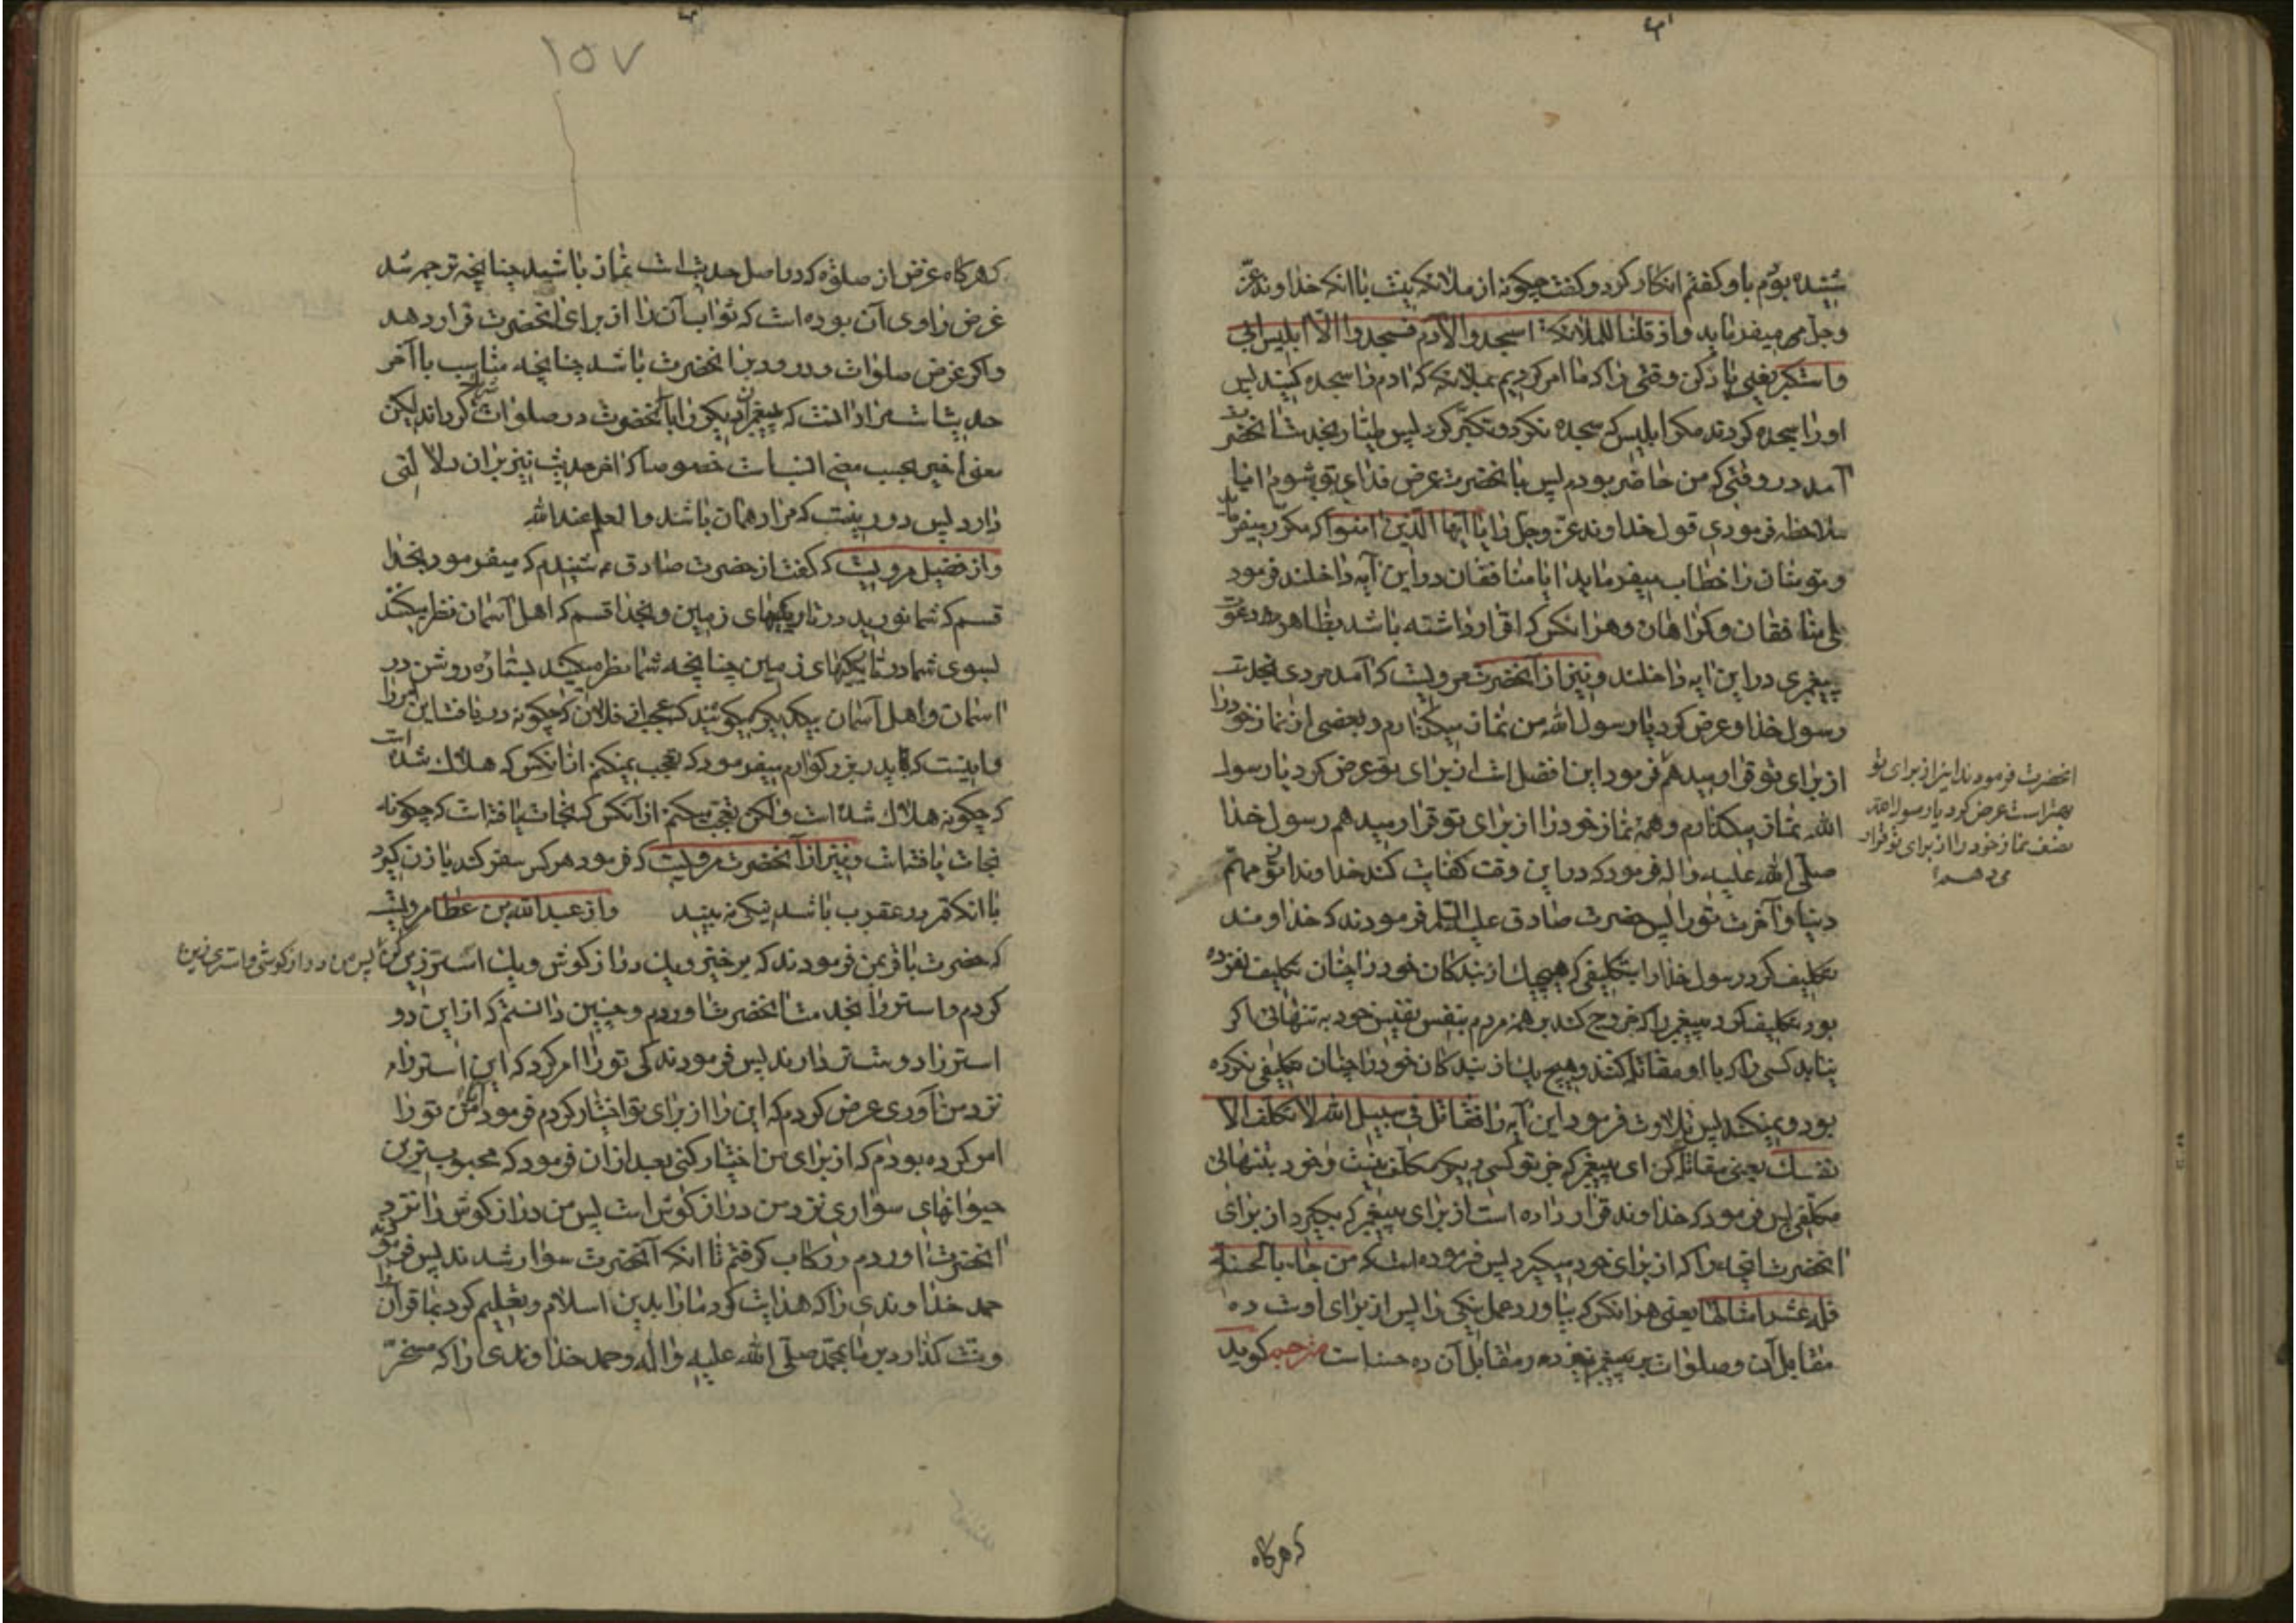 شنیده بودم باو گفتم انکار کرد و گفت چگونه از ملائکه نیست با انکه خداوند عزّ
وجل می میفرماید واذ قلنا للملائکة اسجدوا لآدم فسجدوا الّا ابلیس ابی
واستکبر یعنی یاد کن وقتی را که ما امر کردیم بملائکه که ادم را سجده کنید پس
اورا سجده کردند مگر ابلیس که سجده نکرد و تکبّر کرد پس طیّار بخدمت انحضرت
آمد در وقتی که من حاضر بودم پس بانحضرت عرض فدای تو شوم ایا
ملاحظه فرمودی قول خداوند عزّ وجلّ را یا ایّها الّذین امنوا که مکرّر میفرماید
و مؤمنان را خطاب میفرماید ایا منافقان در این آیه داخلند فرمود
بلی منافقان و گمراهان و هر انکس که اقرار داشته باشد بظاهر دعوت
پیغمبری در این ایه داخلند و نیز از آنحضرت مرویست که آمد مردی بخدمت
رسول خدا و عرض کرد یا رسول الله من نماز میگذارم و بعضی از نماز خود را
از برای تو قرار میدهم فرمود این افضل است از برای تو عرض کرد یا رسول
الله نماز میگذارم و همهٔ نماز خود را از برای تو قرار میدهم رسول خدا
صلّی الله علیه واله فرمود که در این وقت کفایت کند خداوند از تو مهامّ
دنیا و آخرت تو را پس حضرت صادق علیه السّلام فرمودند که خداوند
تکلیف کرد رسول خدا را بتکلیفی که هیچیک از بندکان خود را چنان تکلیف نفرموده
بود تکلیف کرد پیغمبر را که خروج کند بر همهٔ مردم بنفس نفیس خود به تنهائی اگر
نیابد کسی را که با او مقاتله کند و هیچ یک از بندکان خود را چنان تکلیفی نکرده
بود و نمیکند پس تلاوت فرمود این آیه را فقاتل فی سبیل الله لا تکلّف الا
نفسک یعنی مقاتله کن ای پیغمبر که جز تو کسی دیگر مکلّف نیست و خود بتنهائی
مکلّفی پس فرمود که خداوند قرار داده است از برای پیغمبر که بگیرد از برای
انحضرت انچه را که از برای خود میگیرد پس فرموده است که من جاء بالحسنة
فله عشر امثالها یعنی هر انکس که بیاورد عمل نیکی را پس از برای اوست ده
مقابل آن و صلوات بر پیغمبر نیز ده مقابل آن ده حسنه است مترجم کوید
انحضرت فرمودند این از برای تو
بهتر است عرض کرد یا رسول الله
نصف نماز خود را از برای تو قرار
می دهم
که هرگاه
۱۵۷
که هرگاه غرض از صلوة که در اصل حدیث است نماز باشد چنانچه ترجمه شد
غرض راوی آن بوده است که ثواب آن را از برای انحضرت قرار دهد
واگر غرض صلوات و درود بر انحضرت باشد چنانچه مناسب با آخر
حدیث است مراد انست که پیغمبران دیگر را با آنحضرت در صلوات شریک گرداند لیکن
معنی اخیر بحسب انسب است خصوصا که اخر حدیث نیز بران دلالتی
دارد پس دور نیست که مراد همان باشد والعلم عند الله
واز فضیل مرویست که گفت از حضرت صادق ع شنیدم که میفرمود بخدا
قسم که شما نورید در تاریکیهای زمین و بخدا قسم که اهل آسمان نظر میکنند
بسوی شما در تاریکیهای زمین چنانچه شما نظر میکنید بستاره روشن در
اسمان و اهل آسمان بیکدیگر میگویند که عجب از فلان که چگونه دریافت این امر را
و اینست که پدر بزرگوارم میفرمود که تعجب نمیکنم از انکس که هلاک شده است
که چگونه هلاک شده است ولکن تعجب میکنم از آنکس که نجات یافته است که چگونه
نجات یافته است و نیز از آنحضرت مرویست که فرمود هر کس سفر کند یا زن گیرد
با انکه قمر در عقرب باشد نیکی نه بیند واز عبد الله بن عطا مرویست
که حضرت باقر بمن فرمودند که برخیز و یک دراز گوش و یک استر زین کن پس من دراز گوشی و استری زین
کردم و استر را بخدمت انحضرت اوردم و چنین دانستم که از این دو
استر را دوست تر دارند پس فرمودند کی تو را امر کرد که این استر را
نزد من آوری عرض کردم که این را از برای تو اختیار کردم فرمود من تو را
امر کرده بودم که از برای من اختیار کنی بعد از ان فرمود که محبوب ترین
حیوانهای سواری نزد من دراز گوش است پس من دراز گوش را نزد
انحضرت اوردم و رکاب گرفتم تا انکه آنحضرت سوار شدند پس فرمود
حمد خداوندی را که هدایت کرد ما را بدین اسلام و تعلیم کرد بما قرآن را
و منّت گذارد بر ما بمحمّد صلّی الله علیه واله و حمد خداوندی را که مسخّر